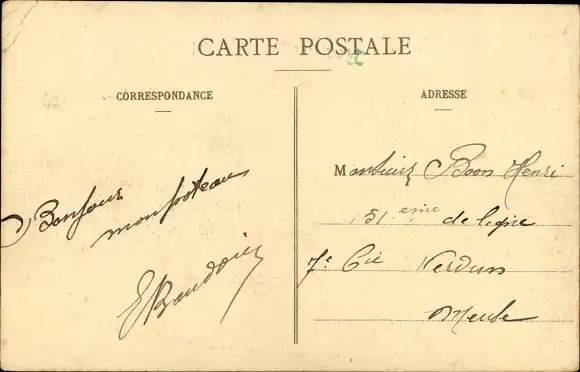 CARTE POSTALE
CORRESPONDANCE
ADRESSE
Bonjour
mon poteau
E Baudoin
Monsieur Boon Henri
151 eme de ligne
7e Cie Verdun
Meuse